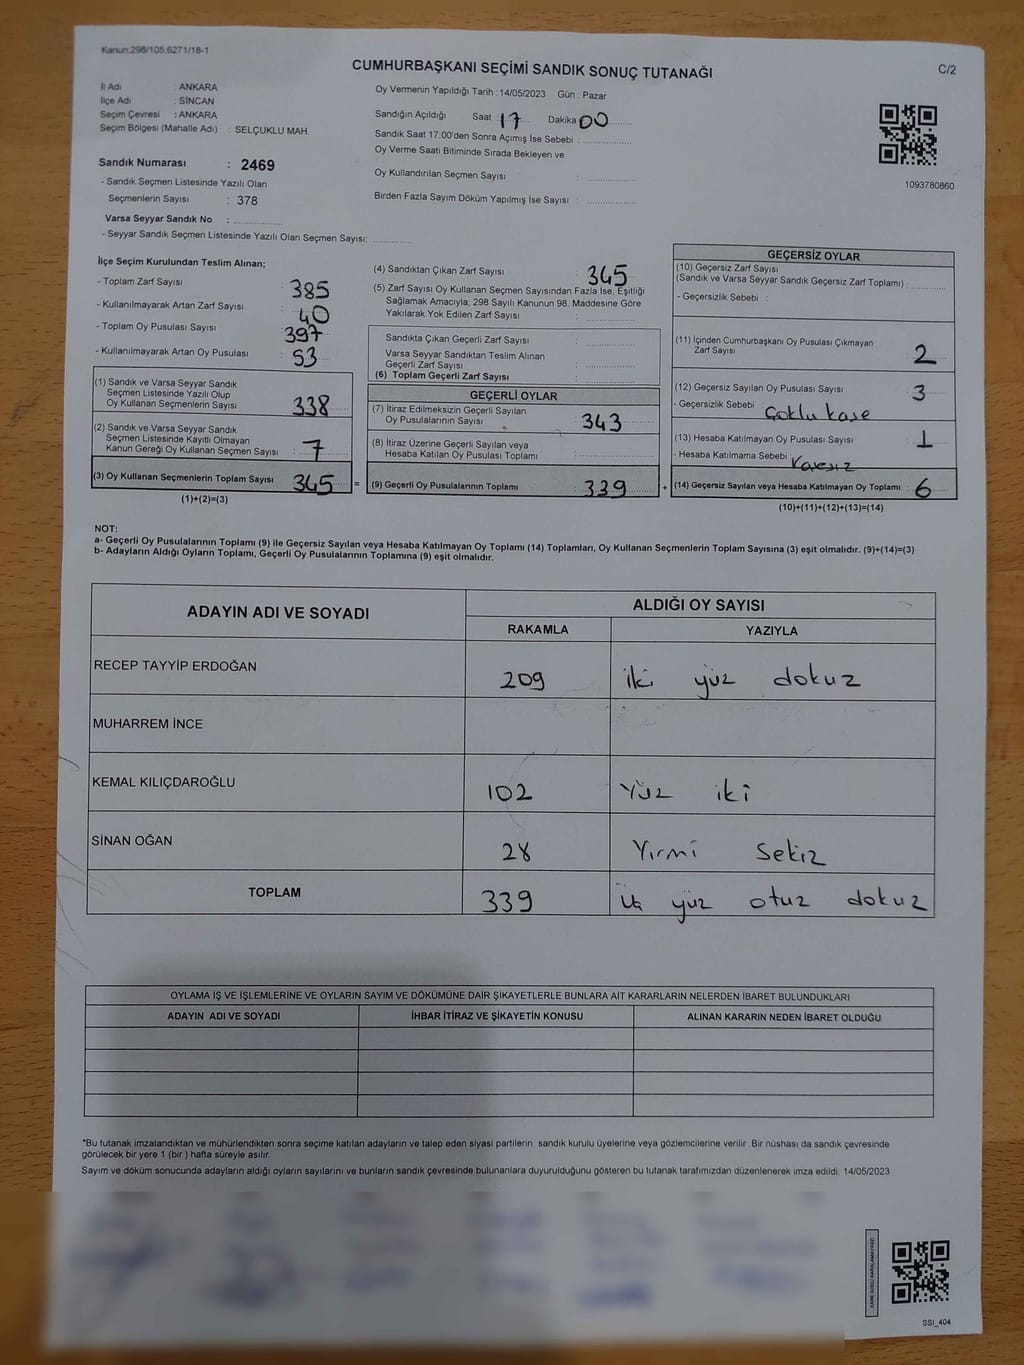 Kanun;298/105,6271/18-1
CUMHURBAŞKANI SEÇİMİ SANDIK SONUÇ TUTANAĞI
C/2
İl Adı : ANKARA
İlçe Adı : SİNCAN
Seçim Çevresi : ANKARA
Seçim Bölgesi (Mahalle Adı) : SELÇUKLU MAH.
Oy Vermenin Yapıldığı Tarih : 14/05/2023 Gün : Pazar
Sandığın Açıldığı Saat : 17 Dakika : 00
Sandık Saat 17:00'den Sonra Açımış İse Sebebi :
Oy Verme Saati Bitiminde Sırada Bekleyen ve
Oy Kullandırılan Seçmen Sayısı :
Birden Fazla Sayım Döküm Yapılmış İse Sayısı :
1093780860
Sandık Numarası : 2469
- Sandık Seçmen Listesinde Yazılı Olan
Seçmenlerin Sayısı : 378
Varsa Seyyar Sandık No :
- Seyyar Sandık Seçmen Listesinde Yazılı Olan Seçmen Sayısı:
İlçe Seçim Kurulundan Teslim Alınan;
- Toplam Zarf Sayısı : 385
- Kullanılmayarak Artan Zarf Sayısı : 40
- Toplam Oy Pusulası Sayısı : 397
- Kullanılmayarak Artan Oy Pusulası : 53
(1) Sandık ve Varsa Seyyar Sandık
Seçmen Listesinde Yazılı Olup
Oy Kullanan Seçmenlerin Sayısı : 338
(2) Sandık ve Varsa Seyyar Sandık
Seçmen Listesinde Kayıtlı Olmayan
Kanun Gereği Oy Kullanan Seçmen Sayısı : 7
(3) Oy Kullanan Seçmenlerin Toplam Sayısı : 345 =
(1)+(2)=(3)
(4) Sandıktan Çıkan Zarf Sayısı : 345
(5) Zarf Sayısı Oy Kullanan Seçmen Sayısından Fazla İse, Eşitliği
Sağlamak Amacıyla; 298 Sayılı Kanunun 98. Maddesine Göre
Yakılarak Yok Edilen Zarf Sayısı :
Sandıkta Çıkan Geçerli Zarf Sayısı :
Varsa Seyyar Sandıktan Teslim Alınan
Geçerli Zarf Sayısı :
(6) Toplam Geçerli Zarf Sayısı :
GEÇERLİ OYLAR
(7) İtiraz Edilmeksizin Geçerli Sayılan
Oy Pusulalarının Sayısı : 343
(8) İtiraz Üzerine Geçerli Sayılan veya
Hesaba Katılan Oy Pusulası Toplamı :
(9) Geçerli Oy Pusulalarının Toplamı : 339 +
GEÇERSİZ OYLAR
(10) Geçersiz Zarf Sayısı
(Sandık ve Varsa Seyyar Sandık Geçersiz Zarf Toplamı) :
- Geçersizlik Sebebi :
(11) İçinden Cumhurbaşkanı Oy Pusulası Çıkmayan
Zarf Sayısı : 2
(12) Geçersiz Sayılan Oy Pusulası Sayısı : 3
- Geçersizlik Sebebi : Çoklu kase
(13) Hesaba Katılmayan Oy Pusulası Sayısı : 1
- Hesaba Katılmama Sebebi :
(14) Geçersiz Sayılan veya Hesaba Katılmayan Oy Toplamı : 6
(10)+(11)+(12)+(13)=(14)
NOT:
a- Geçerli Oy Pusulalarının Toplamı (9) ile Geçersiz Sayılan veya Hesaba Katılmayan Oy Toplamı (14) Toplamları, Oy Kullanan Seçmenlerin Toplam Sayısına (3) eşit olmalıdır. (9)+(14)=(3)
b- Adayların Aldığı Oyların Toplamı, Geçerli Oy Pusulalarının Toplamına (9) eşit olmalıdır.
ADAYIN ADI VE SOYADI
ALDIĞI OY SAYISI
RAKAMLA YAZIYLA
RECEP TAYYİP ERDOĞAN 209 iki yüz dokuz
MUHARREM İNCE
KEMAL KILIÇDAROĞLU 102 Yüz iki
SİNAN OĞAN 28 Yirmi Sekiz
TOPLAM 339 üç yüz otuz dokuz
OYLAMA İŞ VE İŞLEMLERİNE VE OYLARIN SAYIM VE DÖKÜMÜNE DAİR ŞİKAYETLERLE BUNLARA AİT KARARLARIN NELERDEN İBARET BULUNDUKLARI
ADAYIN ADI VE SOYADI İHBAR İTİRAZ VE ŞİKAYETİN KONUSU ALINAN KARARIN NEDEN İBARET OLDUĞU
*Bu tutanak imzalandıktan ve mühürlendikten sonra seçime katılan adayların ve talep eden siyasi partilerin, sandık kurulu üyelerine veya gözlemcilerine verilir .Bir nüshası da sandık çevresinde
görülecek bir yere 1 (bir ) hafta süreyle asılır.
Sayım ve döküm sonucunda adayların aldığı oyların sayılarını ve bunların sandık çevresinde bulunanlara duyurulduğunu gösteren bu tutanak tarafımızdan düzenlenerek imza edildi. 14/05/2023
KARE KODU KARALAMAYINIZ!
SSI_404